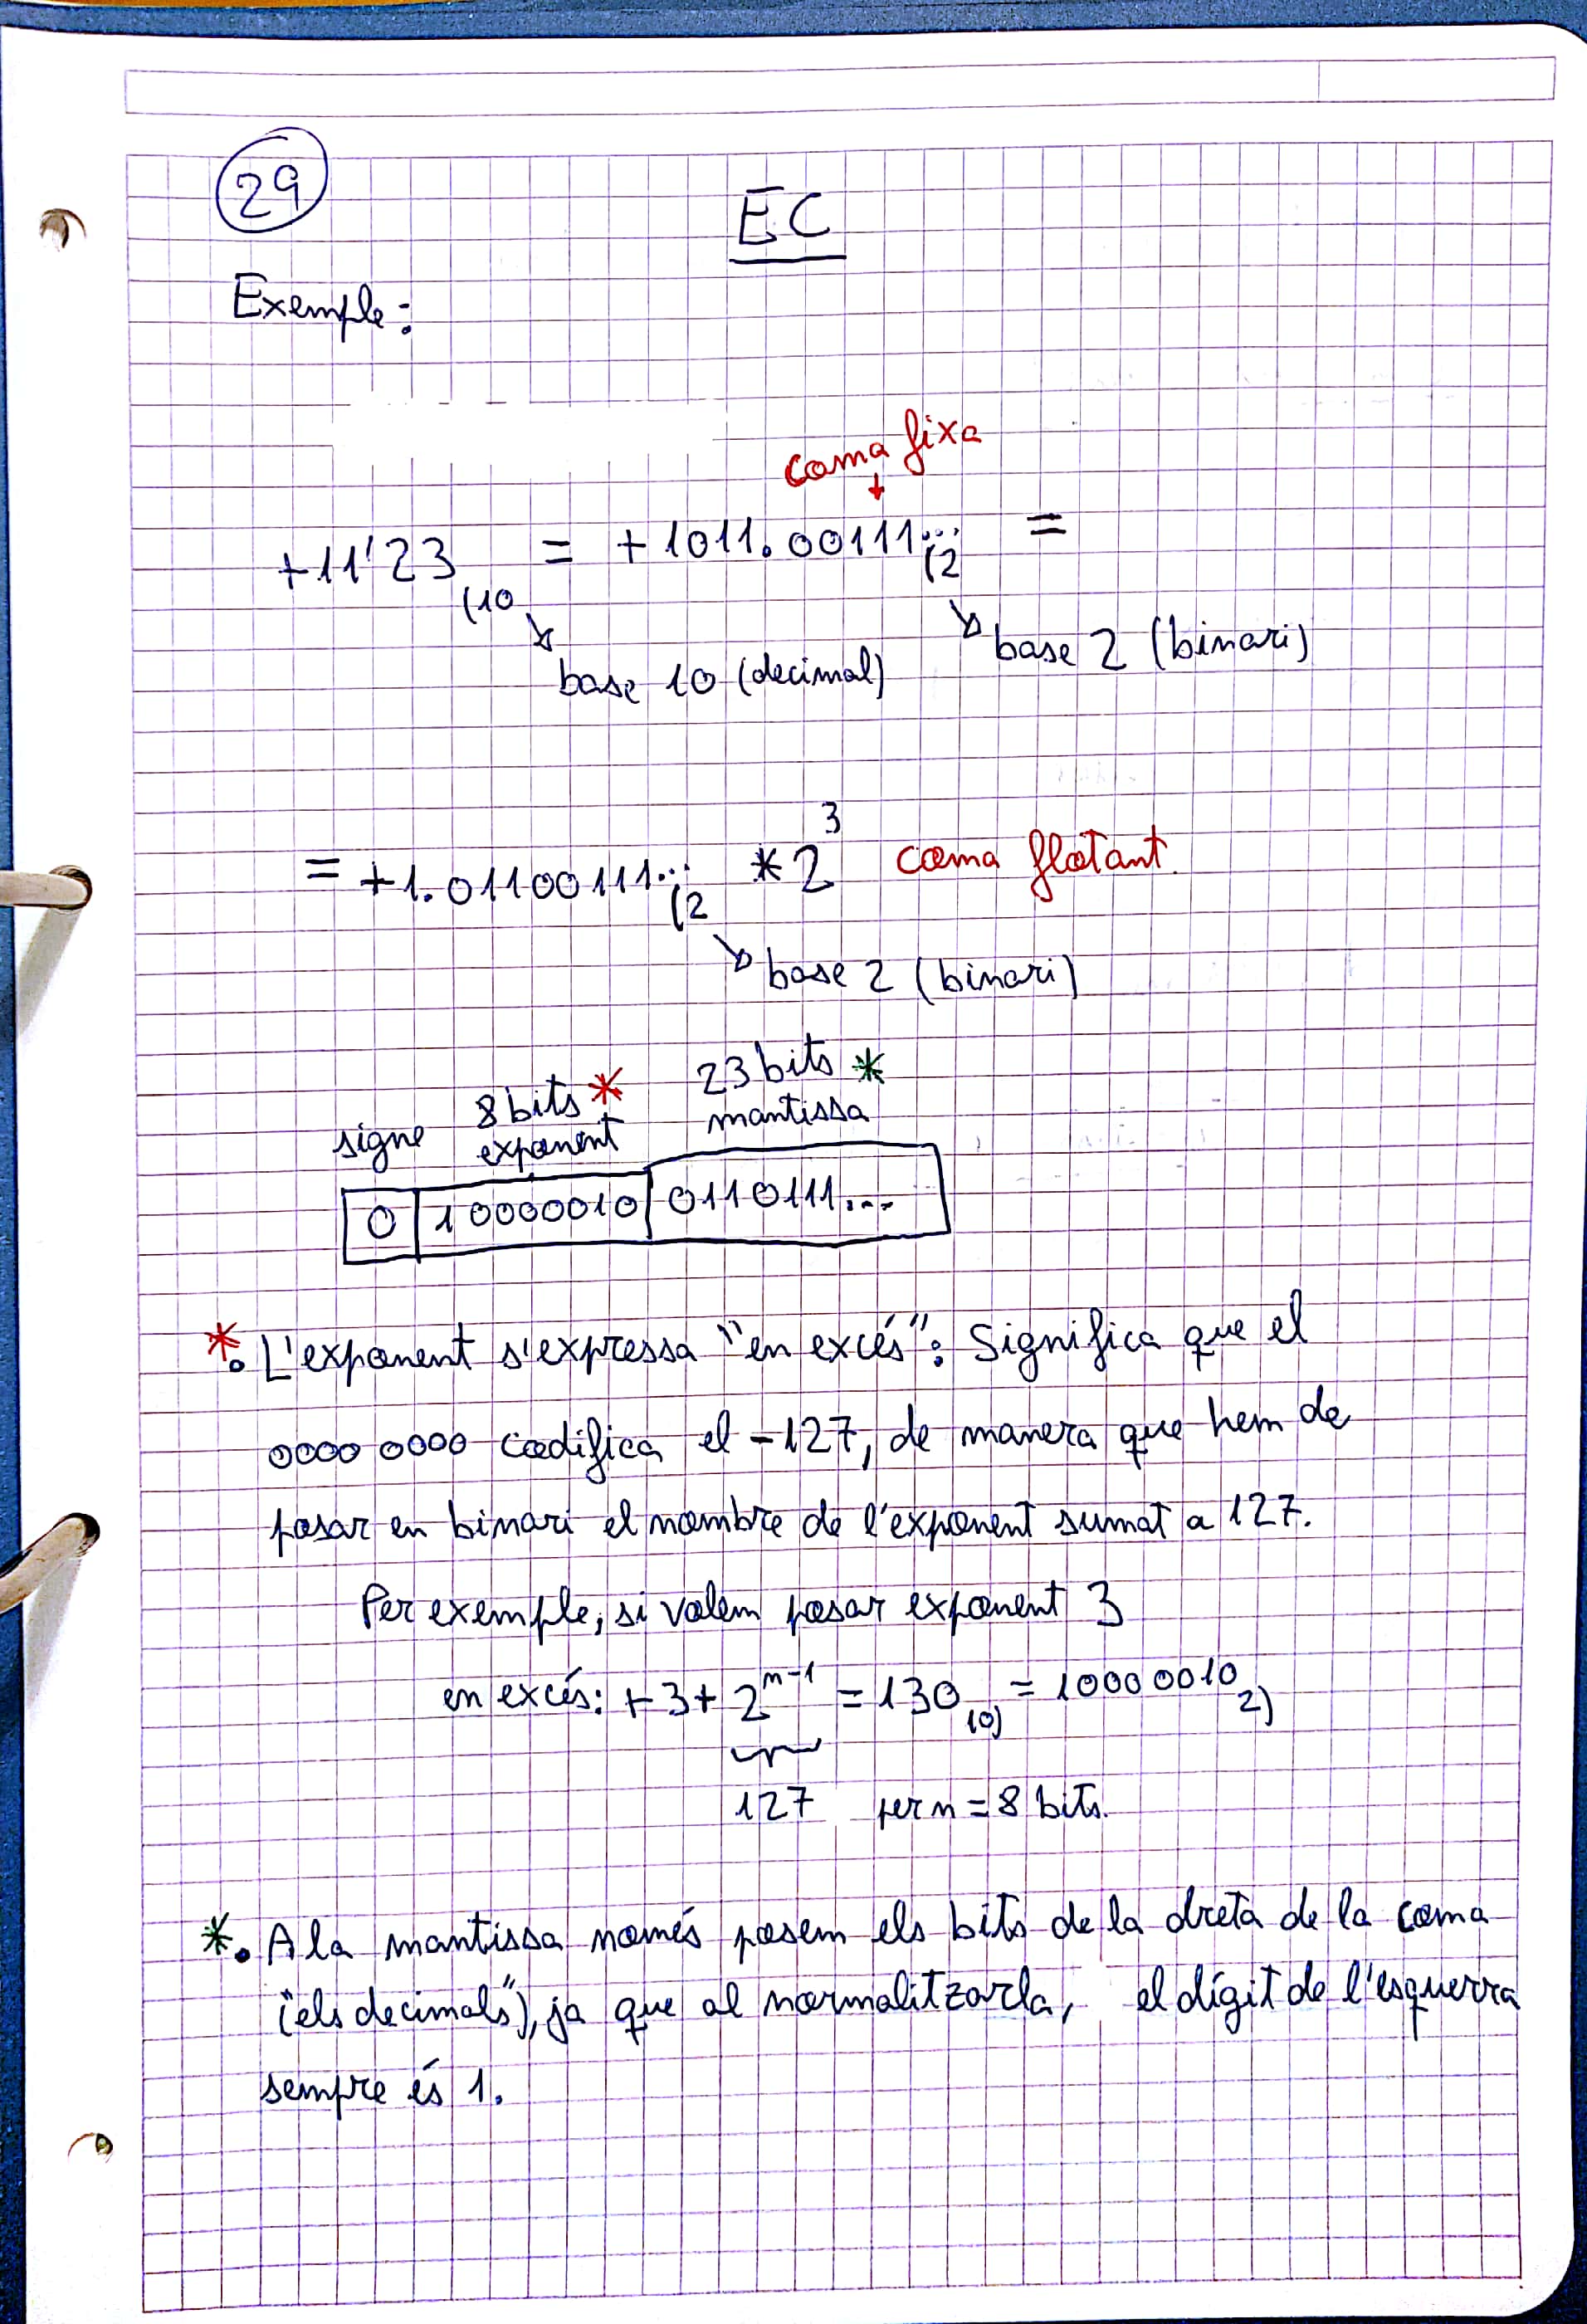 29
EC
Exemple:
coma fixa
+11'23 (10 = +1011.00111... (2 =
base 10 (decimal)
base 2 (binari)
= +1.01100111... (2 * 2^3 coma flotant.
base 2 (binari)
signe 8 bits * exponent 23 bits * mantissa
0 10000010 0110111...
*. L'exponent s'expressa "en excés": Significa que el
0000 0000 codifica el -127, de manera que hem de
posar en binari el nombre de l'exponent sumat a 127.
Per exemple, si volem posar exponent 3
en excés: +3+2^n-1 = 130 10) = 10000010 2)
127 per n = 8 bits.
*. A la mantissa només posem els bits de la dreta de la coma
("els decimals"), ja que al normalitzarla, el dígit de l'esquerra
sempre és 1.